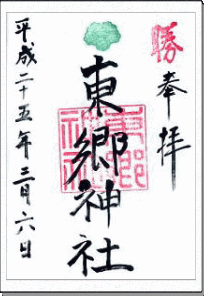 勝
奉拝
東郷神社
東郷神社
平成二十五年二月六日